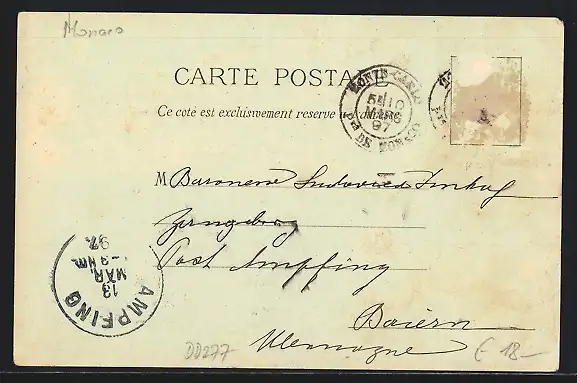 Monaco
CARTE POSTALE
Ce côté est exclusivement réservé à l'adresse
MONTE-CARLO
5E 10
MARS
97
PTÉ DE MONACO
M Baronesse
Zangberg
Post Ampfing
Baiern
Allemagne
AMPFING
13
MAR.
97.
DD277
€ 18-